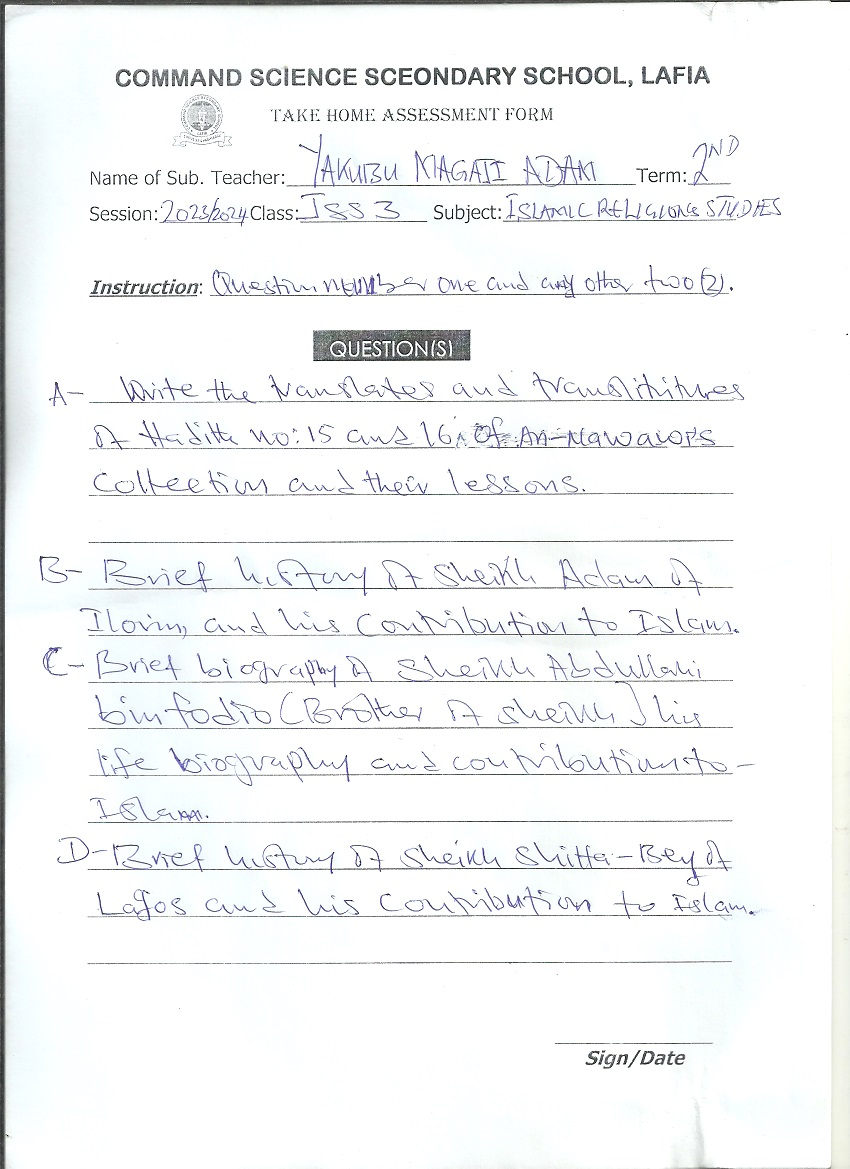 COMMAND SCIENCE SCEONDARY SCHOOL, LAFIA
TAKE HOME ASSESSMENT FORM
Name of Sub. Teacher: YAKUBU MAGAJI ADAM Term: 2ND
Session: 2023/2024 Class: JSS 3 Subject: ISLAMIC RELIGIONS STUDIES
Instruction: Question number one and any other two (2).
QUESTION(S)
A- Write the translates and
of Hadith no: 15 and 16 of An-Nawawi's
Collection and their lessons.
B- Brief history of Sheikh Adam of
Ilorin, and his Contribution to Islam.
C- Brief biography of Sheikh Abdullahi
bin fodio (Brother of Sheikh) his
life biography and contribution to-
Islam.
D- Brief history of Sheikh Shitta-Bey of
Lagos and his Contribution to Islam.
Sign/Date